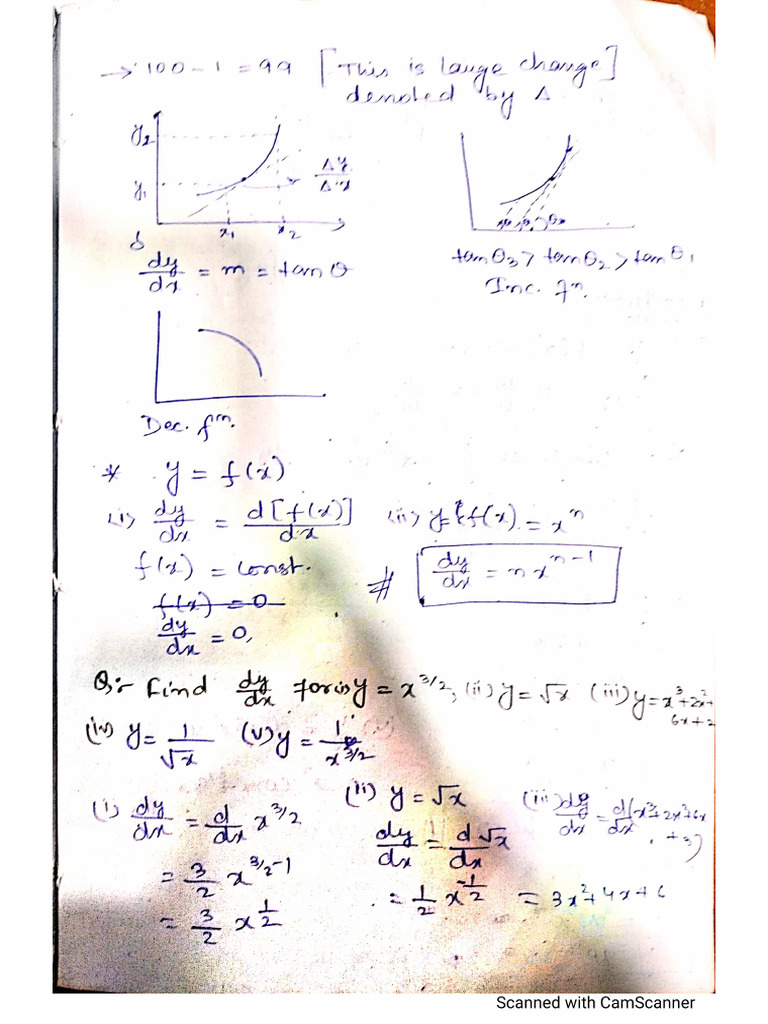 → 100 - 1 = 99 [This is lauge change]
denoted by Δ
y₂
y₁
Δy/Δx
x₁ x₂
θ₃
dy/dx = m = tanθ
tanθ₃ > tanθ₂ > tanθ₁
Inc. fⁿ.
Dec. fⁿ.
* y = f(x)
(i) dy/dx = d[f(x)]/dx (ii) f(x) = xⁿ
f(x) = const.
# dy/dx = nxⁿ⁻¹
f(x) = 0
dy/dx = 0,
Q:- Find dy/dx for (i) y = x^3/2, (ii) y = √x (iii) y = x³+2x²+
6x+2
(iv) y = 1/√x (v) y = 1/x^3/2
(i) dy/dx = d/dx x^3/2 (ii) y = √x (iii) dy/dx = d(x³+2x²+6x
+3)/dx
dy/dx = d√x/dx
= 3/2 x^3/2-1
= 1/2 x^-1/2 = 3x²+4x+6
= 3/2 x^1/2
Scanned with CamScanner